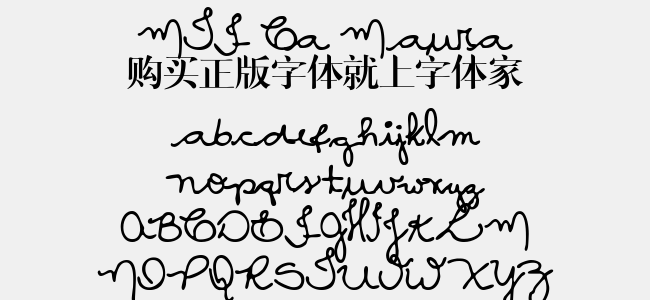 MTF Ca Maura
购买正版字体就上字体家
abcdefghijklm
nopqrstuvwxyz
ABCDEFGHIJKLM
NOPQRSTUVWXYZ